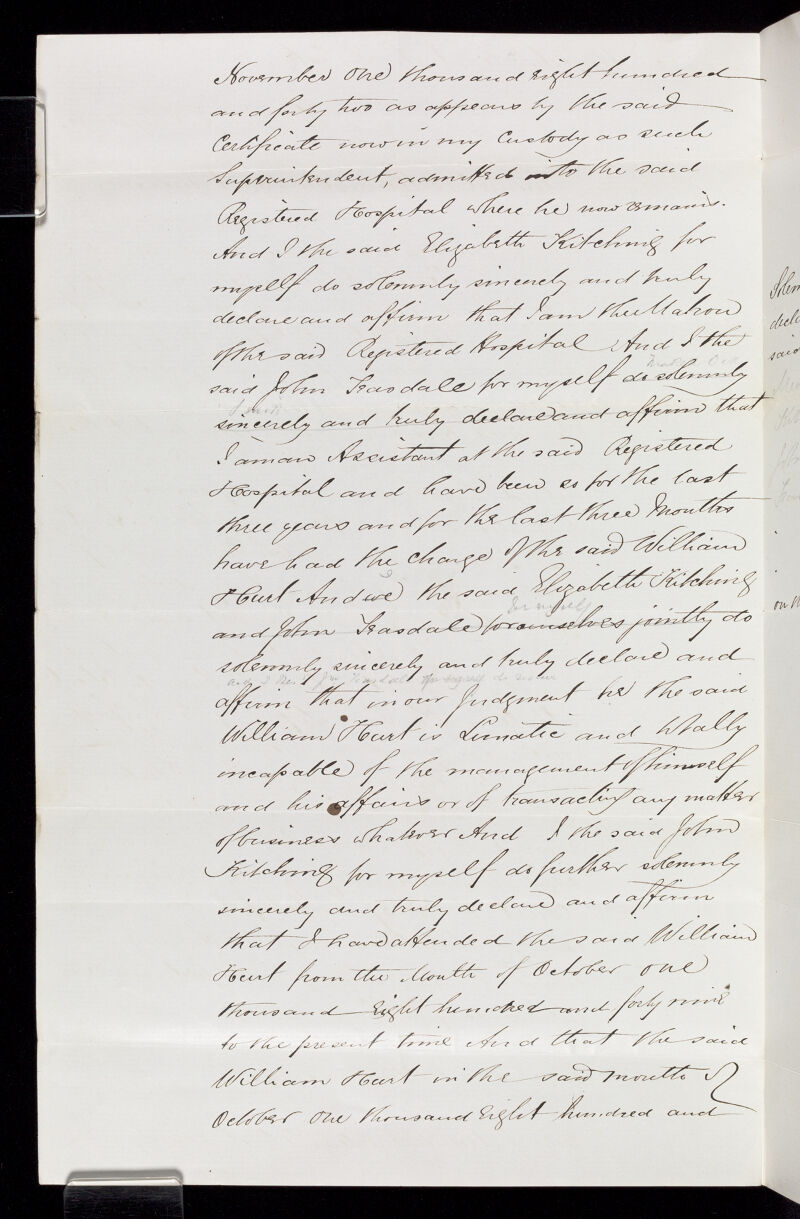 November one thousand eight hundred
and forty two as appears by the said
Certificate now in my Custody as such
Superintendent, admitted into the said
Registered Hospital where he now remains.
And I the said Elizabeth Kitching for
myself do solemnly sincerely and truly
declare and affirm that I am the Matron
of the said Registered Hospital And I the
said John Teasdale for myself do solemnly
sincerely and truly declare and affirm that
I am an Assistant at the said Registered
Hospital and have been so for the last
three years and for the last three Months
have had the charge of the said William
Hurt And we I the said Elizabeth Kitching
for myself
and John Teasdale for ourselves jointly do
solemnly sincerely and truly declare and
and I the Jno Teasdale for myself do
affirm that in our Judgment he the said
William Hurt is Lunatic and totally
incapable of the management of himself
and his affairs or of transacting any matter
of business whatever And I the said John
Kitching for myself do further solemnly
sincerely and truly declare and affirm
that I have attended the said William
Hurt from the Month of October one
thousand eight hundred and forty nine
to the present time And that the said
William Hurt in the said month of
October one thousand eight hundred and
Solem
decla
said
John
on th